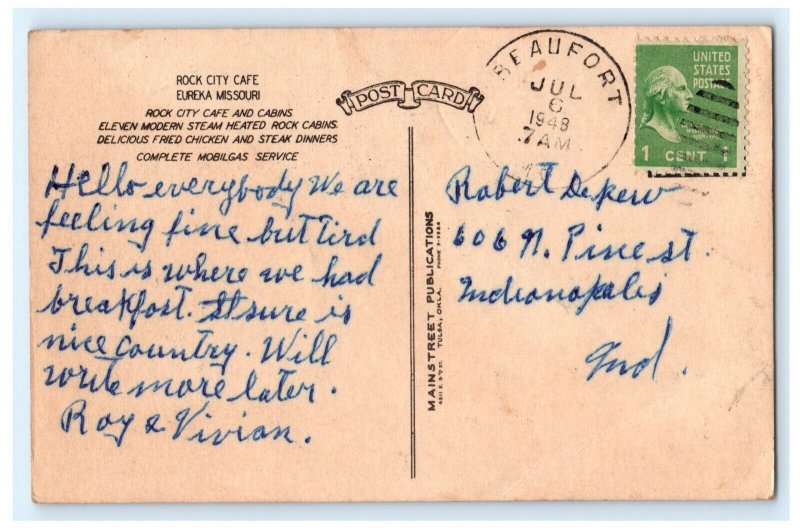 ROCK CITY CAFE
EUREKA MISSOURI
ROCK CITY CAFE AND CABINS
ELEVEN MODERN STEAM HEATED ROCK CABINS.
DELICIOUS FRIED CHICKEN AND STEAK DINNERS
COMPLETE MOBILGAS SERVICE
Hello everybody We are
feeling fine but Tird
This is where we had
breakfast. It sure is
nice country. Will
write more later.
Roy & Vivian.
POST CARD
MAINSTREET PUBLICATIONS
TULSA, OKLA.
BEAUFORT
JUL
6
1948
7 AM
UNITED
STATES
POSTAGE
1 CENT 1
Robert Depew
606 N. Pine st.
Indianapolis
Ind.